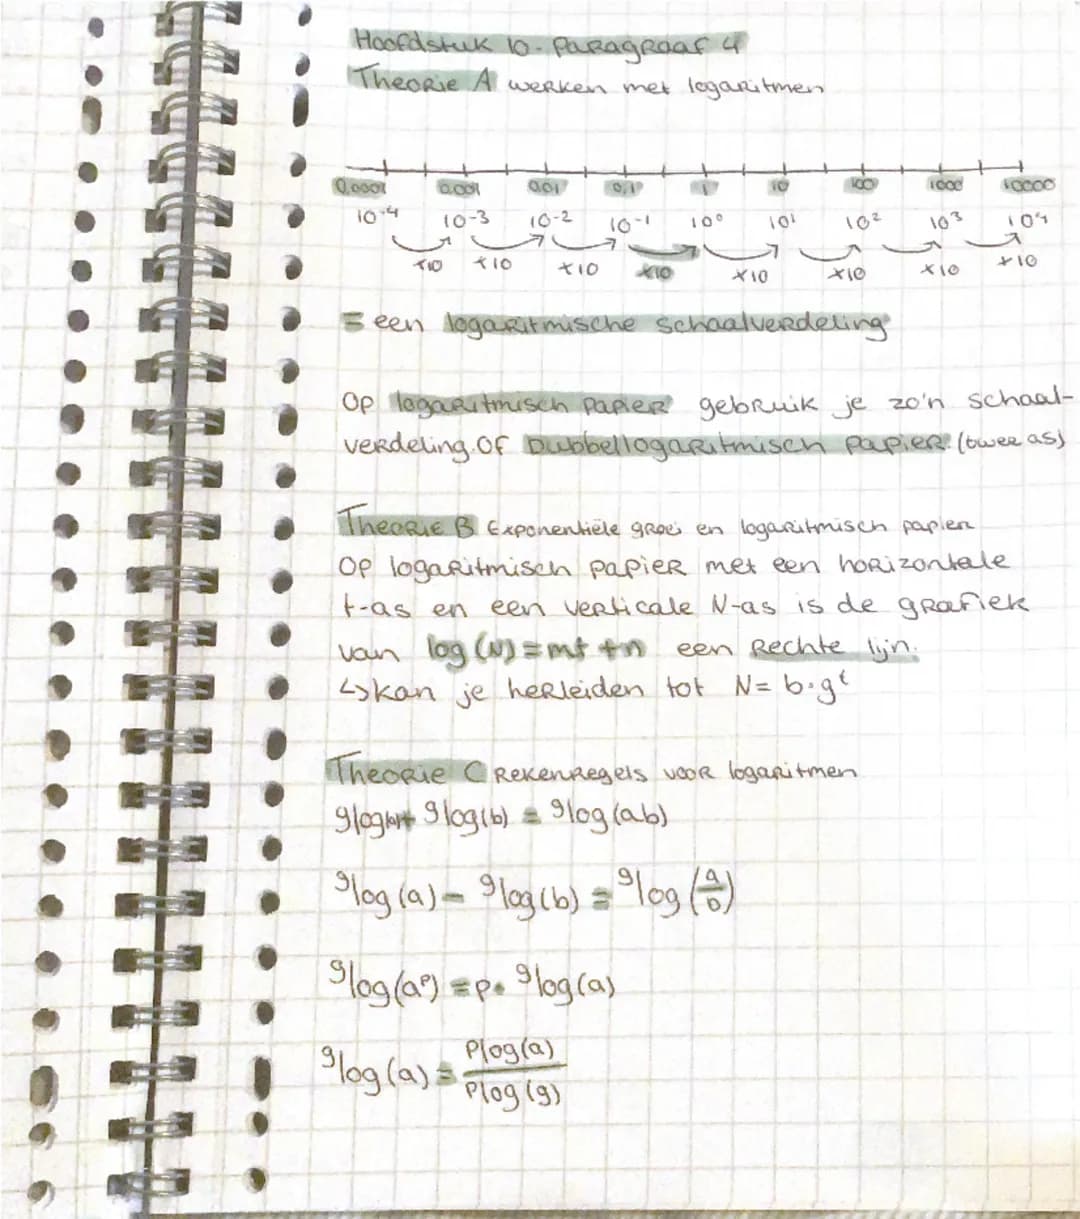 Hoofdstuk 10 - Paragraaf 4
Theorie A werken met logaritmen
0.0001 0.001 0,01 0,1 1 10 100 1000 10000
10⁻⁴ 10⁻³ 10⁻² 10⁻¹ 10⁰ 10¹ 10² 10³ 10⁴
×10 ×10 ×10 ×10 ×10 ×10 ×10 ×10
= een logaritmische schaalverdeling
Op logaritmisch papier gebruik je zo'n schaal-
verdeling. Of Dubbellogaritmisch papier. (twee as)
Theorie B Exponentiële groei en logaritmisch papier
Op logaritmisch papier met een horizontale
t-as en een verticale N-as is de grafiek
van log (N) = mt + n een Rechte lijn.
↳ kan je herleiden tot N = b·gᵗ
Theorie C Rekenregels voor logaritmen
ᵍlog(a)+ ᵍlog(b) = ᵍlog(ab)
ᵍlog (a) - ᵍlog(b) = ᵍlog (a/b)
ᵍlog(aᵖ) = p· ᵍlog(a)
ᵍlog(a) = ᵖlog(a)/ᵖlog(g)